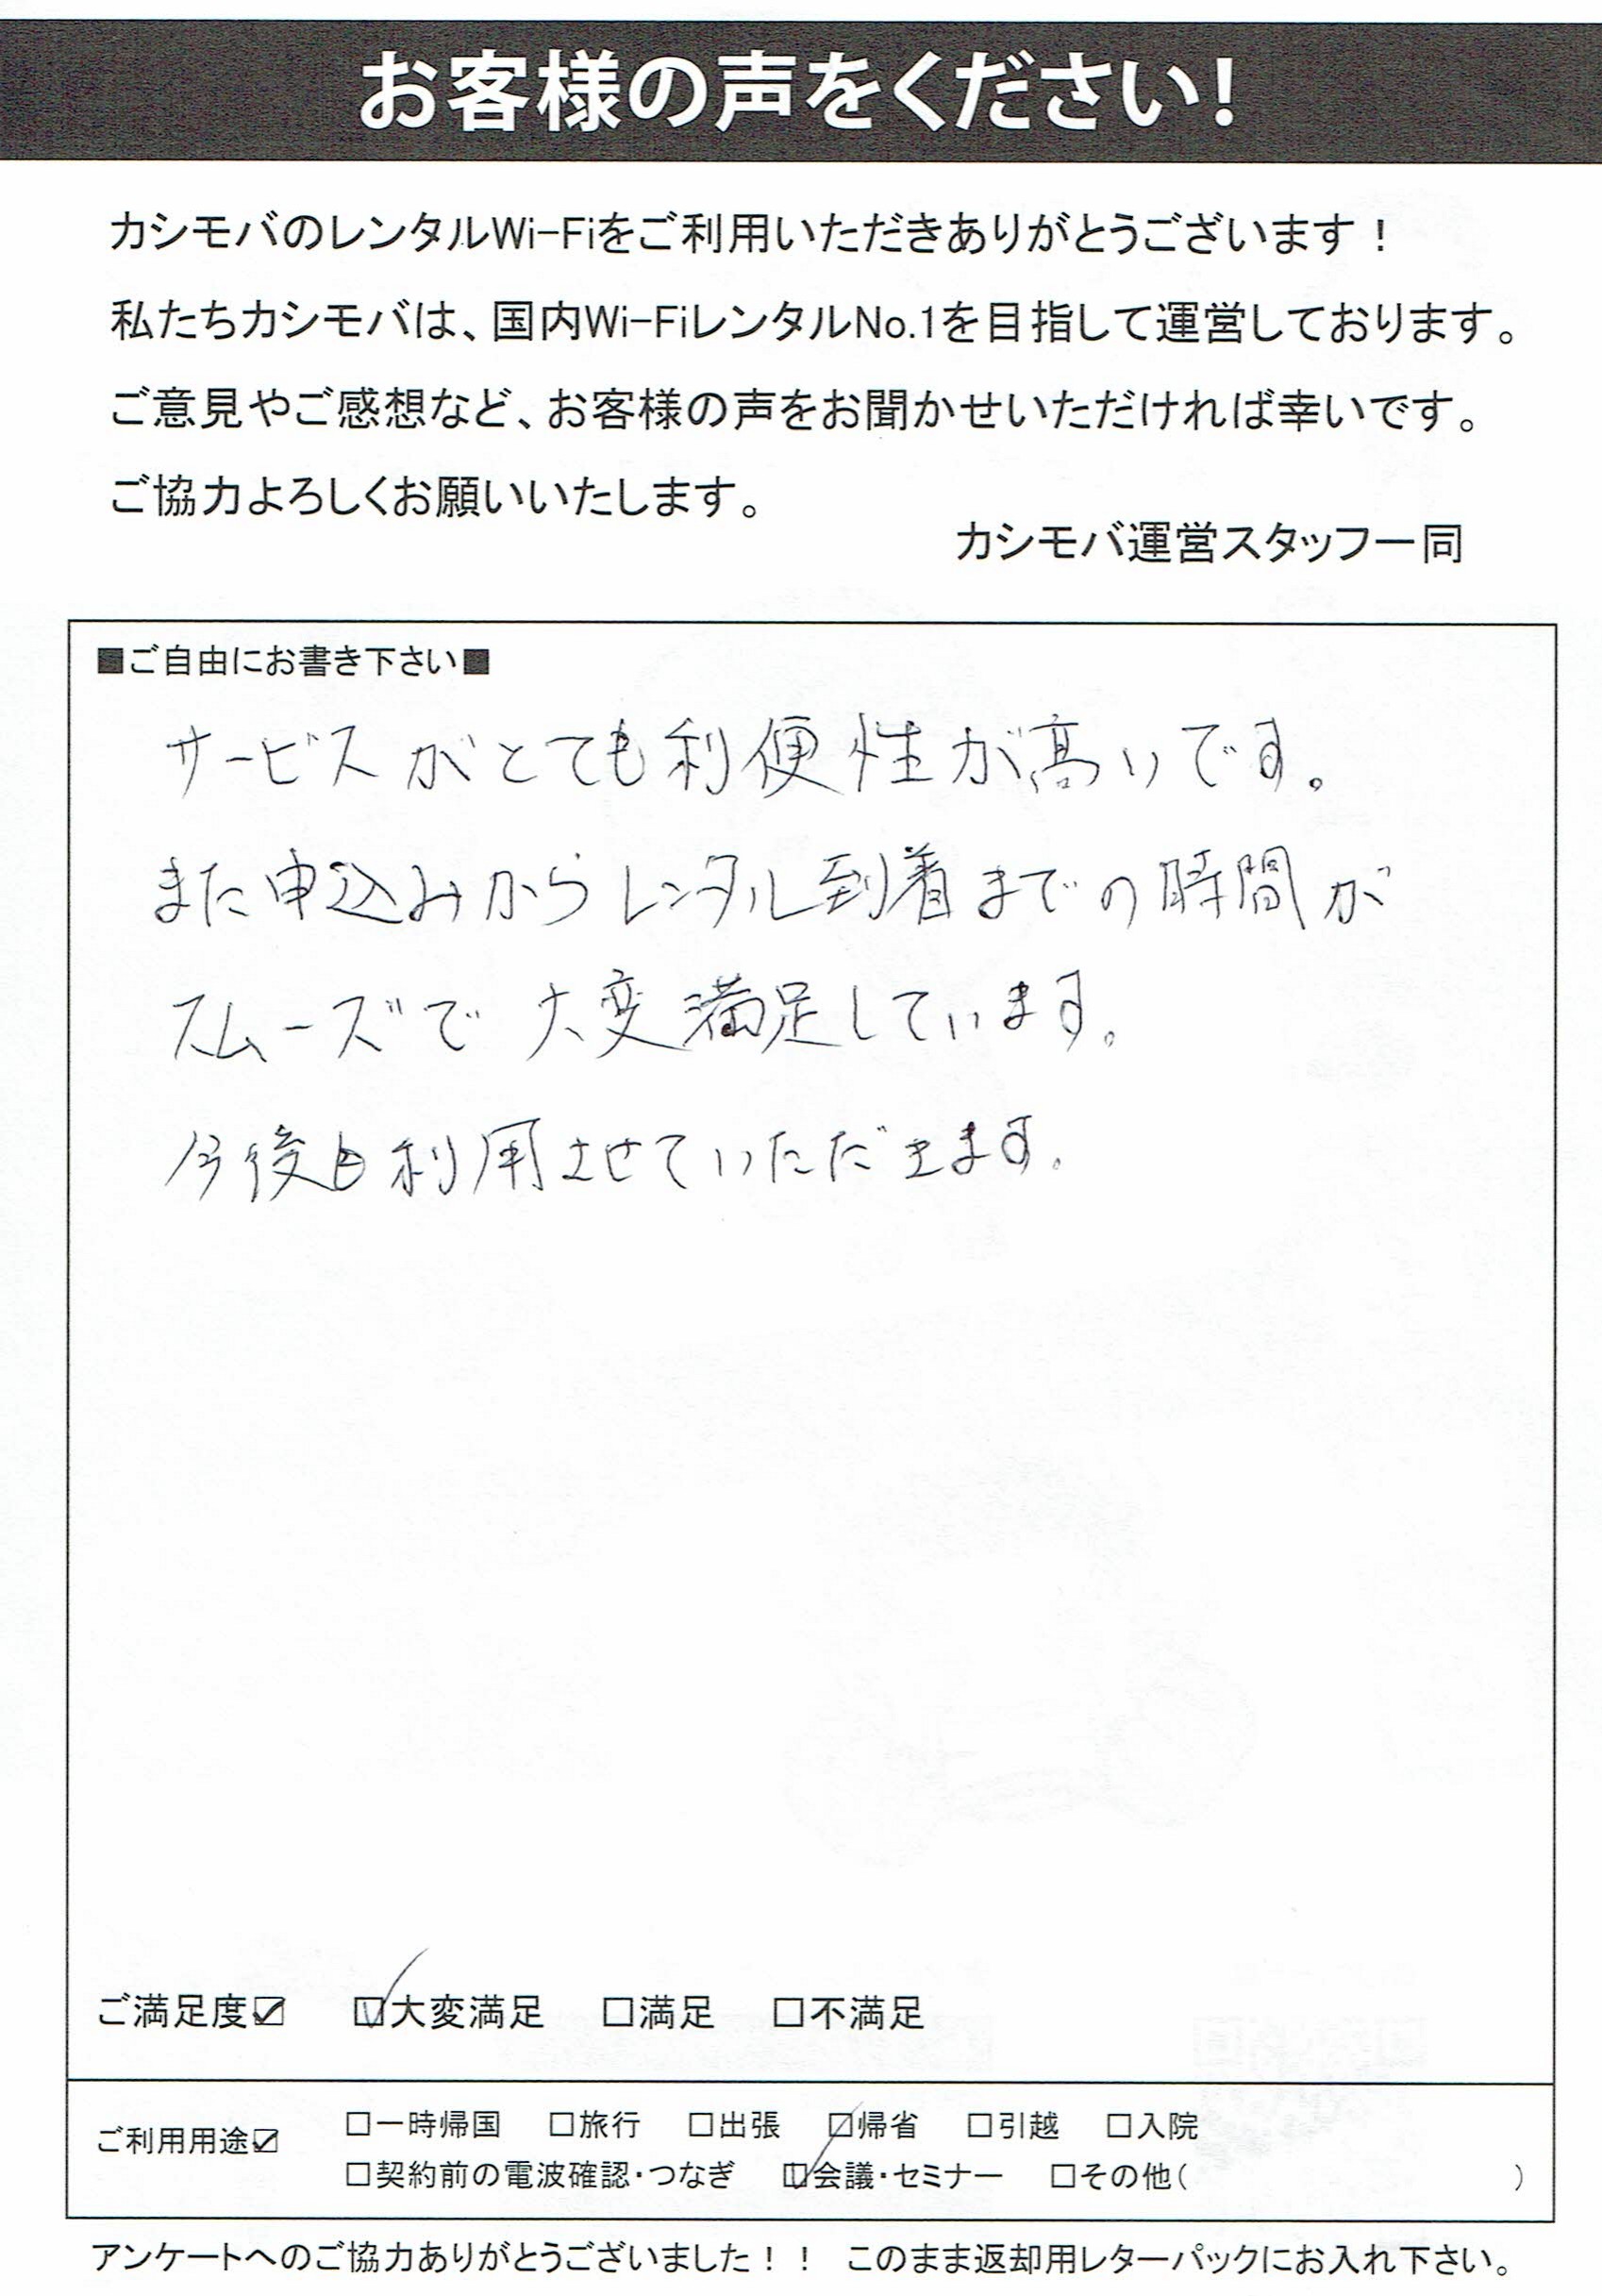 お客様の声をください!
カシモバのレンタルWi-Fiをご利用いただきありがとうございます！
私たちカシモバは、国内Wi-FiレンタルNo.1を目指して運営しております。
ご意見やご感想など、お客様の声をお聞かせいただければ幸いです。
ご協力よろしくお願いいたします。
カシモバ運営スタッフ一同
■ご自由にお書き下さい■
サービスがとても利便性が高いです。
また申込みからレンタル到着までの時間が
スムーズで大変満足しています。
今後も利用させていただきます。
ご満足度☑ ☑大変満足 □満足 □不満足
ご利用用途☑ □一時帰国 □旅行 □出張 □帰省 □引越 □入院
□契約前の電波確認・つなぎ ☑会議・セミナー □その他( )
アンケートへのご協力ありがとうございました！！ このまま返却用レターパックにお入れ下さい。